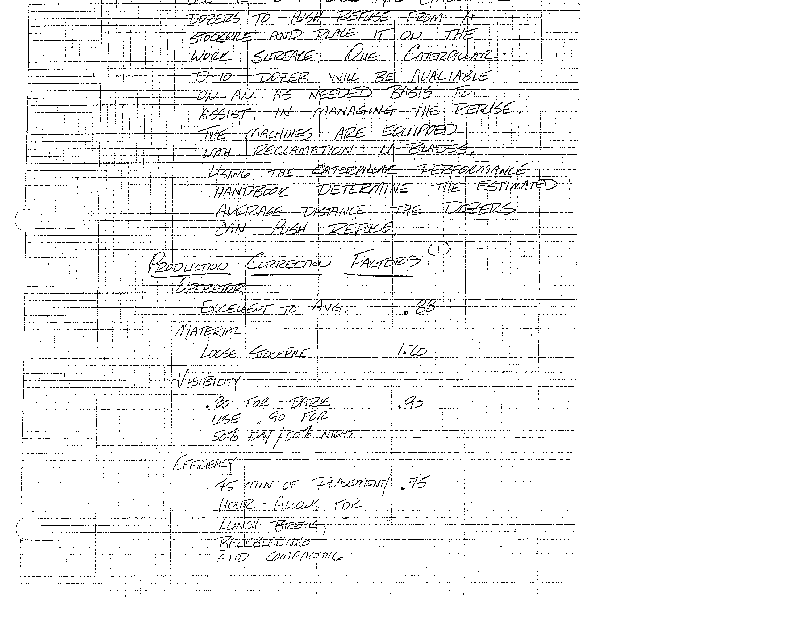 DOZERS TO PUSH REFUSE FROM A
STOCKPILE AND PLACE IT ON THE
WORK SURFACE. ONE CATERPILLAR
D-10 DOZER WILL BE AVALIABLE
ON AN AS NEEDED BASIS TO
ASSIST IN MANAGING THE REFUSE.
THE MACHINES ARE EQUIPPED
WITH RECLAMATION U-BLADES.
USING THE CATERPILLAR PERFORMANCE
HANDBOOK DETERMINE THE ESTIMATED
AVERAGE DISTANCE THE DOZERS
CAN PUSH REFUSE.
PRODUCTION CORRECTION FACTORS (1)
OPERATOR
EXCELLENT TO AVG. .88
MATERIAL
LOOSE STOCKPILE 1.20
VISIBILITY
FOR DARK
USE .90 FOR
50% DAY/50% NIGHT
EFFICIENCY
45 MIN OF 7.75
HOUR - ALLOWS FOR
LUNCH BREAK,
AND COMPACTING